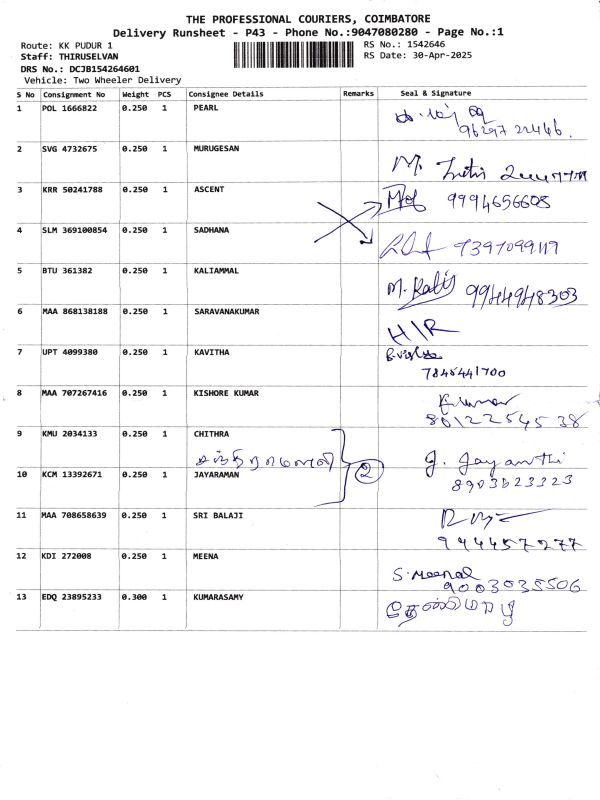 THE PROFESSIONAL COURIERS, COIMBATORE
Delivery Runsheet - P43 - Phone No.:9047080280 - Page No.:1
Route: KK PUDUR 1 RS No.: 1542646
Staff: THIRUSELVAN RS Date: 30-Apr-2025
DRS No.: DCJB154264601
Vehicle: Two Wheeler Delivery
S No Consignment No Weight PCS Consignee Details Remarks Seal & Signature
1 POL 1666822 0.250 1 PEARL
96297 22446.
2 SVG 4732675 0.250 1 MURUGESAN
M.
3 KRR 50241788 0.250 1 ASCENT
9994656608
4 SLM 369100854 0.250 1 SADHANA
7397099119
5 BTU 361382 0.250 1 KALIAMMAL
M. 9944948303
6 MAA 868138188 0.250 1 SARAVANAKUMAR
H/R
7 UPT 4099380 0.250 1 KAVITHA
7845441700
8 MAA 707267416 0.250 1 KISHORE KUMAR
80122 545 38
9 KMU 2034133 0.250 1 CHITHRA
2 J. Jayanthi
10 KCM 13392671 0.250 1 JAYARAMAN
8903823323
11 MAA 708658639 0.250 1 SRI BALAJI
9444457277
12 KDI 272008 0.250 1 MEENA
S. Meena
9003035506
13 EDQ 23895233 0.300 1 KUMARASAMY
தேன்மொழி